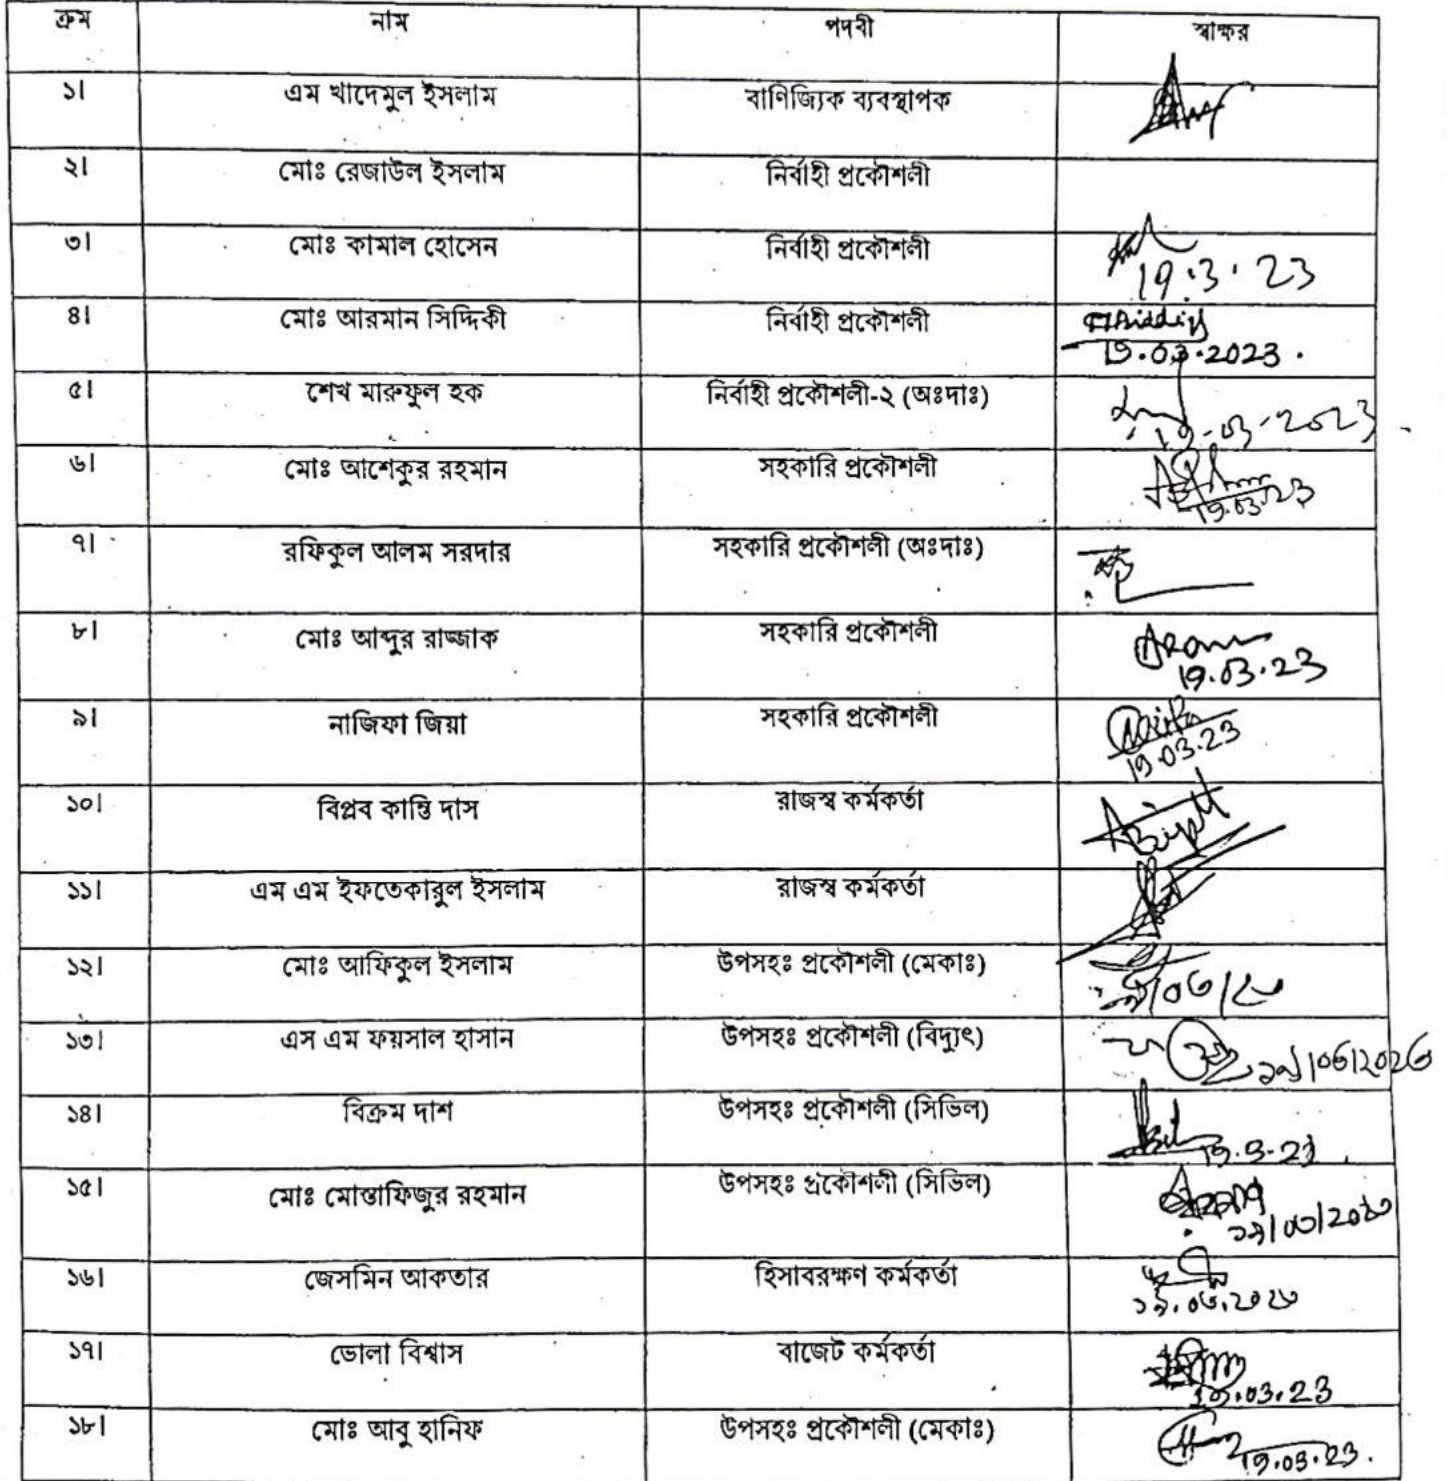 ক্রম নাম পদবী স্বাক্ষর
১। এম খাদেমুল ইসলাম বাণিজ্যিক ব্যবস্থাপক
২। মোঃ রেজাউল ইসলাম নির্বাহী প্রকৌশলী
৩। মোঃ কামাল হোসেন নির্বাহী প্রকৌশলী
19.3.23
৪। মোঃ আরমান সিদ্দিকী নির্বাহী প্রকৌশলী
19.03.2023.
৫। শেখ মারুফুল হক নির্বাহী প্রকৌশলী-২ (অঃদাঃ)
19-03-2023
৬। মোঃ আশেকুর রহমান সহকারি প্রকৌশলী
19.03.23
৭। রফিকুল আলম সরদার সহকারি প্রকৌশলী (অঃদাঃ)
৮। মোঃ আব্দুর রাজ্জাক সহকারি প্রকৌশলী
19.03.23
৯। নাজিফা জিয়া সহকারি প্রকৌশলী
19.03.23
১০। বিপ্লব কান্তি দাস রাজস্ব কর্মকর্তা
১১। এম এম ইফতেকারুল ইসলাম রাজস্ব কর্মকর্তা
১২। মোঃ আফিকুল ইসলাম উপসহঃ প্রকৌশলী (মেকাঃ)
১৩। এস এম ফয়সাল হাসান উপসহঃ প্রকৌশলী (বিদ্যুৎ)
১৯/০৩/২০২৩
১৪। বিক্রম দাশ উপসহঃ প্রকৌশলী (সিভিল)
১৫। মোঃ মোস্তাফিজুর রহমান উপসহঃ প্রকৌশলী (সিভিল)
১৯/০৩/২০২৩
১৬। জেসমিন আকতার হিসাবরক্ষণ কর্মকর্তা
১৯.০৩.২০২৩
১৭। ভোলা বিশ্বাস বাজেট কর্মকর্তা
19.03.23
১৮। মোঃ আবু হানিফ উপসহঃ প্রকৌশলী (মেকাঃ)
19.03.23.